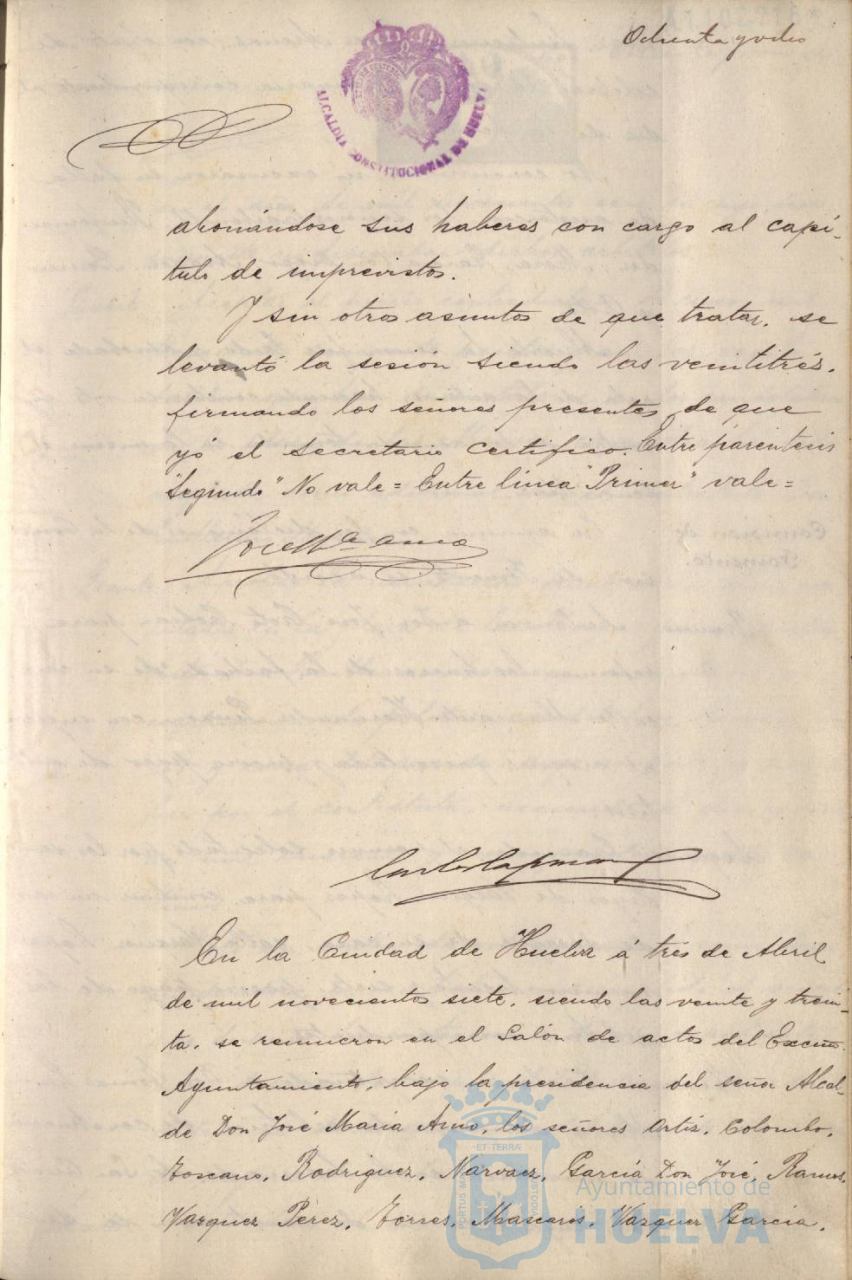 Ochenta y ocho
ALCALDIA CONSTITUCIONAL DE HUELVA
abonándose sus haberes con cargo al capí-
tulo de imprevistos.
Y sin otros asuntos de que tratar, se
levantó la sesión siendo las veintitrés,
firmando los señores presentes, de que
yó el Secretario certifico. Entre paréntesis
"Segundo" No vale = Entre línea "Primer" vale =
José Mª Amo
En la Ciudad de Huelva á trés de Abril
de mil novecientos siete, siendo las veinte y trein-
ta, se reunieron en el Salón de actos del Excmo
Ayuntamiento, bajo la presidencia del señor Alcal-
de Don José María Amo, los señores Ortiz, Colombo,
Toscano, Rodriguez, Narvaez, García Don José, Ramos,
Vazquez Pérez, Torres, Mascarós, Vazquez García,
ET TERRÆ
PORTUS MARIS
CUSTODIA
Ayuntamiento de
HUELVA